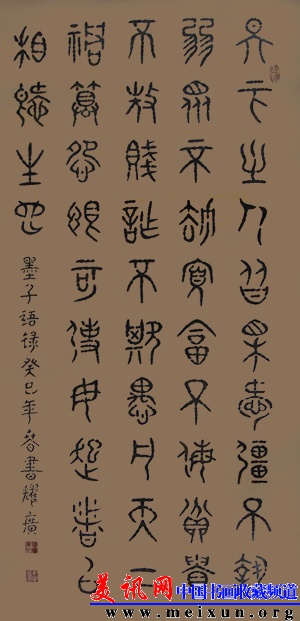 天下之人皆相愛彊不執
弱眾不劫寡富不侮貧貴
不敖賤詐不欺愚凡天下
禍篡怨恨可使毋起者以
相愛生也
墨子語錄癸巳年春書耀廣
美讯网 中国书画收藏频道
www.meixun.org